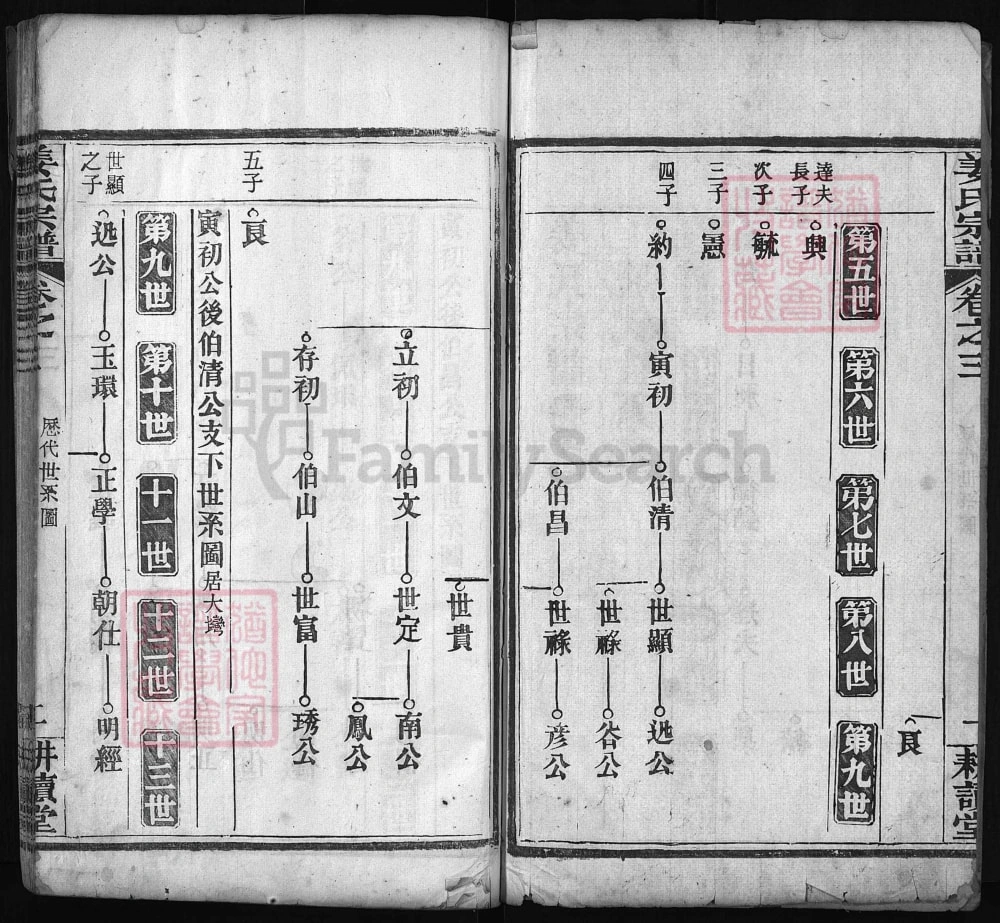 姜氏宗譜
卷之三
耕讀堂
艮
第五世
第六世
第七世
第八世
第九世
達夫
長子
興
次子
毓
三子
憲
四子
約
寅初
伯清
世顯
迅公
世祿
谷公
伯昌
世祿
彥公
世貴
立初
伯文
世定
南公
鳳公
存初
伯山
世富
琇公
五子
艮
寅初公後伯清公支下世系圖居大灣
第九世
第十世
十一世
十二世
十三世
世顯
之子
迅公
玉環
正學
朝仕
明經
姜氏宗譜
卷之三
歷代世系圖
耕讀堂
FamilySearch